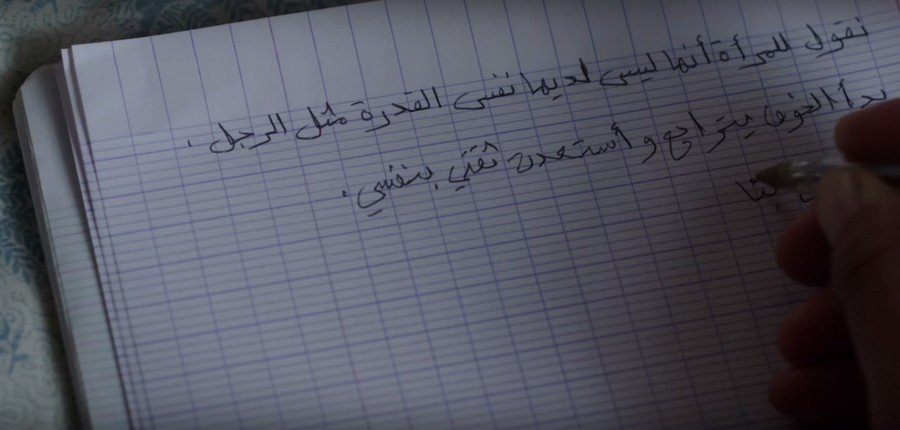 نقول للمرأة أنها ليس لديها نفس القدرة مثل الرجل.
بدأ الخوف يتراجع وأستعدت ثقتي بنفسي.